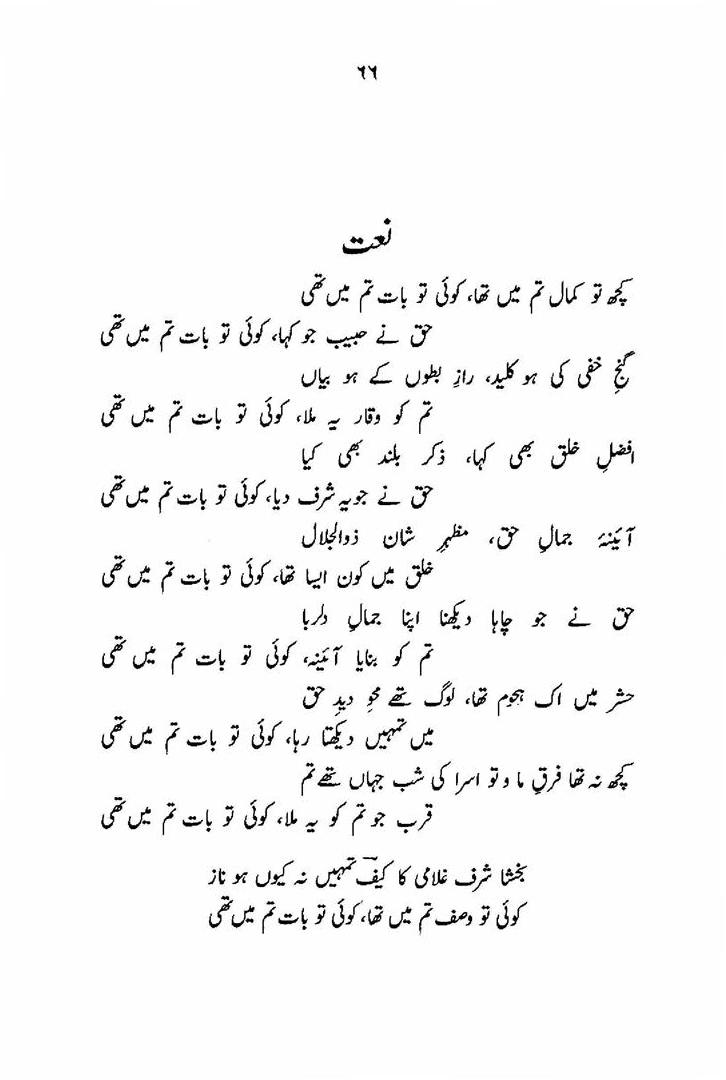 ۶۶
نعت
کچھ تو کمال تم میں تھا، کوئی تو بات تم میں تھی
حق نے حبیب جو کہا، کوئی تو بات تم میں تھی
گنجِ خفی کی ہو کلید، رازِ بطوں کے ہو بیاں
تم کو وقار یہ ملا، کوئی تو بات تم میں تھی
افضلِ خلق بھی کہا، ذکر بلند بھی کیا
حق نے جو یہ شرف دیا، کوئی تو بات تم میں تھی
آئینۂ جمالِ حق، مظہرِ شان ذوالجلال
خلق میں کون ایسا تھا، کوئی تو بات تم میں تھی
حق نے جو چاہا دیکھنا اپنا جمالِ دلربا
تم کو بنایا آئینہ، کوئی تو بات تم میں تھی
حشر میں اک ہجوم تھا، لوگ تھے محوِ دیدِ حق
میں تمہیں دیکھتا رہا، کوئی تو بات تم میں تھی
کچھ نہ تھا فرقِ ما و تو اسرا کی شب جہاں تھے تم
قرب جو تم کو یہ ملا، کوئی تو بات تم میں تھی
بخشا شرف غلامی کا کیفؔ تمہیں نہ کیوں ہو ناز
کوئی تو وصف تم میں تھا، کوئی تو بات تم میں تھی